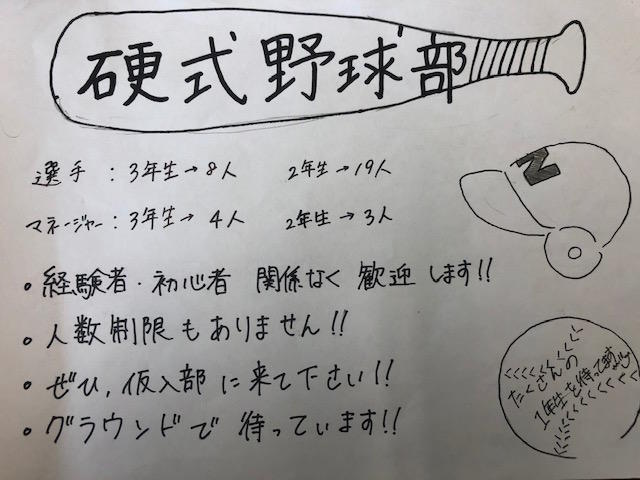 硬式野球部
選手：3年生→8人 2年生→19人
マネージャー：3年生→4人 2年生→3人
N
・経験者・初心者 関係なく 歓迎します!!
・人数制限もありません!!
・ぜひ、仮入部に来て下さい!!
・グラウンドで待っています!!
たくさんの
1年生を待ってます